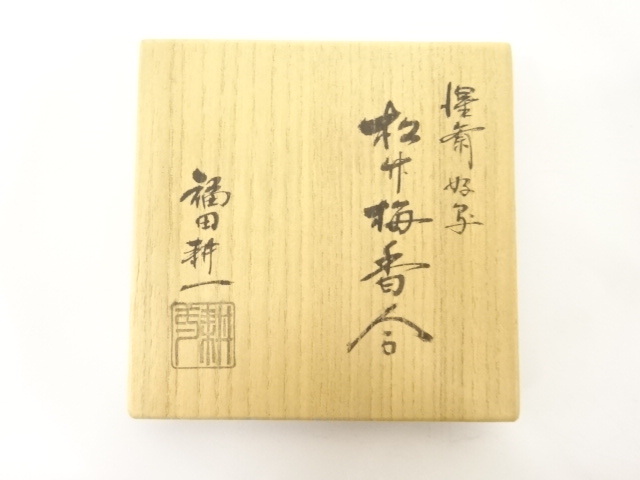 惺斎好写
松竹梅香合
福田耕一